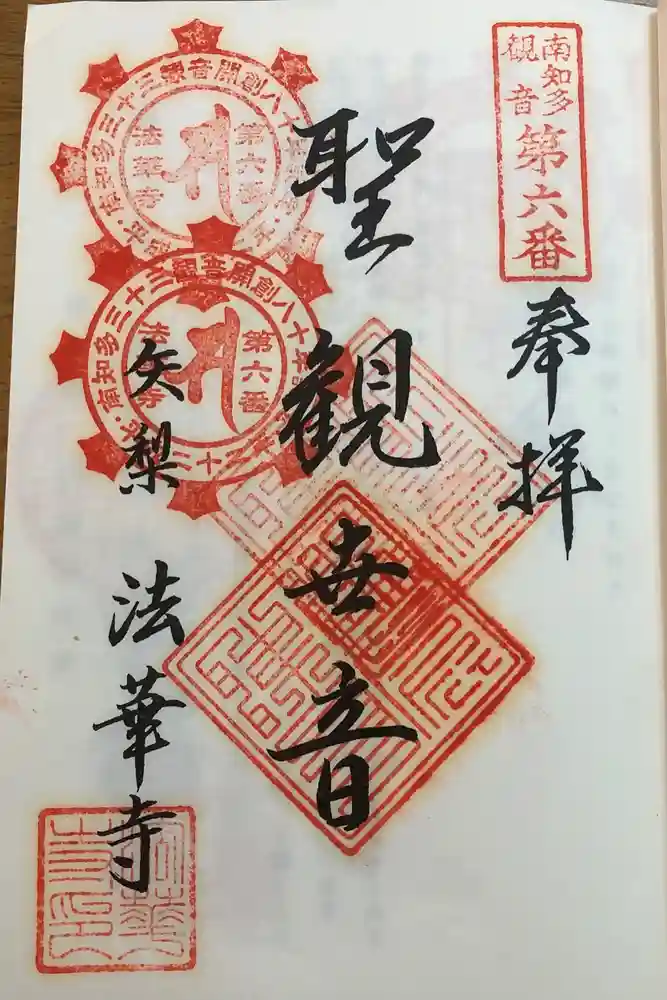 南知多
観音
第六番
奉拝
聖観世音
矢梨 法華寺
第六番
法華寺
南知多三十三観音開創八十
第六番
法華寺
南知多三十三観音開創八十